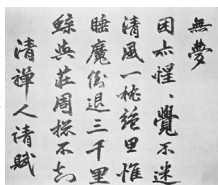 無夢
困亦惺〻覺不迷
清風一枕絶思惟
睡魔倒退三千里
鯨與莊周摸不知
清禅人清賦